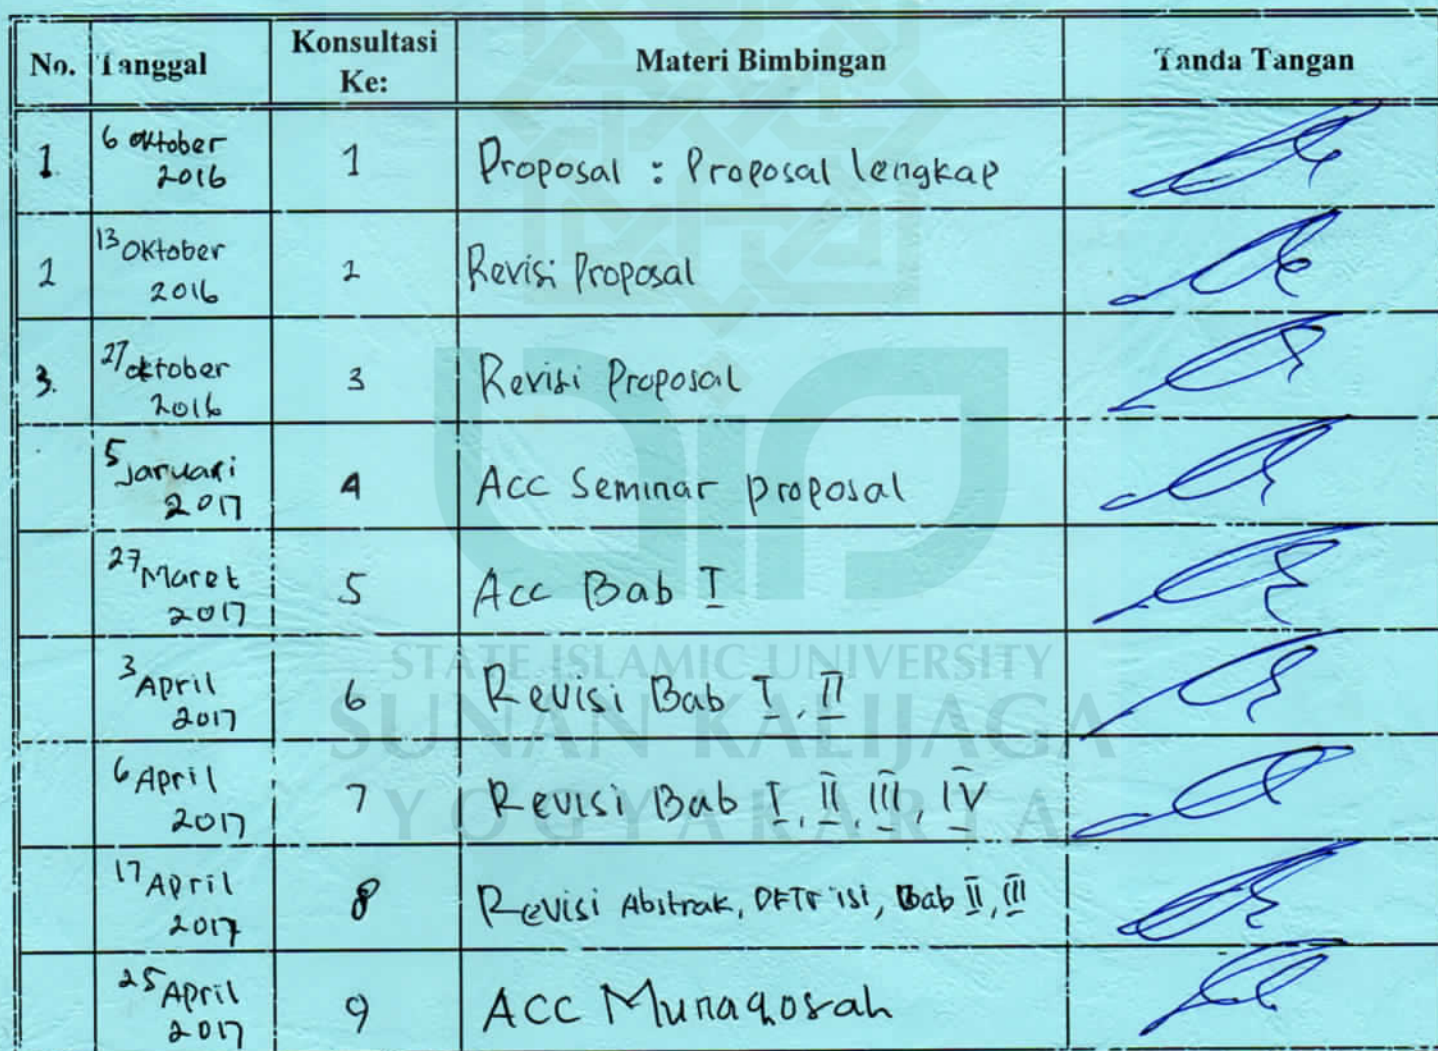 No. Tanggal Konsultasi Ke: Materi Bimbingan Tanda Tangan
1. 6 Oktober 2016 1 Proposal : Proposal lengkap
2 13 Oktober 2016 2 Revisi Proposal
3. 27 Oktober 2016 3 Revisi Proposal
5 Januari 2017 4 Acc Seminar proposal
27 Maret 2017 5 Acc Bab I
3 April 2017 6 Revisi Bab I, II
6 April 2017 7 Revisi Bab I, II, III, IV
17 April 2017 8 Revisi Abstrak, DFTR isi, Bab II, III
25 April 2017 9 ACC Munaqosah
STATE ISLAMIC UNIVERSITY
SUNAN KALIJAGA
YOGYAKARTA